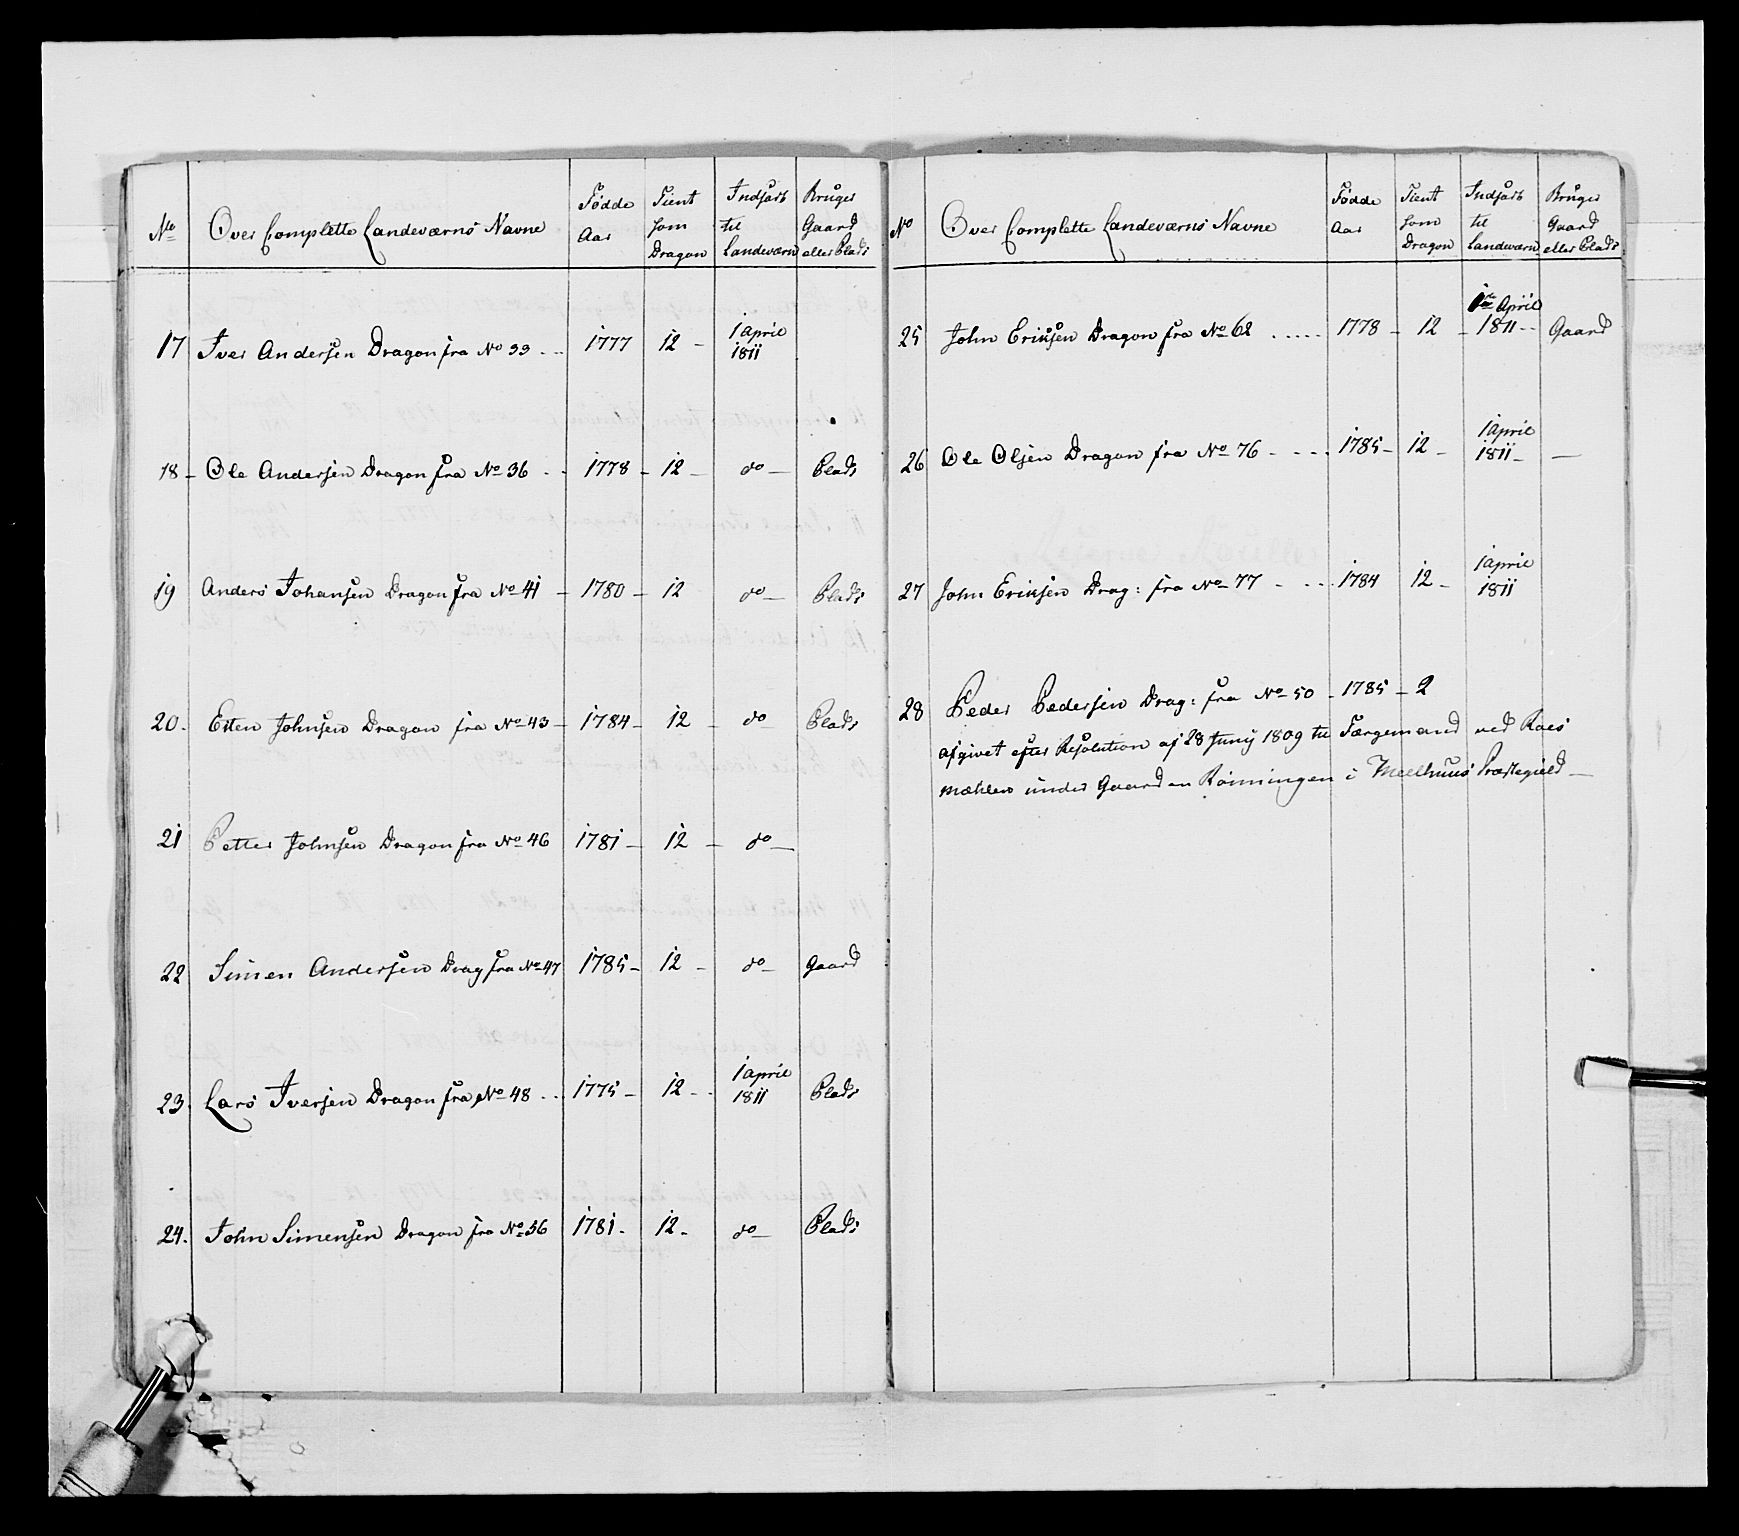 No Over Complette Landeværns Navne Fødde Aar Tient som Dragon Indført til Landeværn Bruger Gaard eller Plads
17 Iver Andersen Dragon fra No 33 1777 12 1 April 1811
18 Ole Andersen Dragon fra No 36 1778 12 do Plads
19 Anders Johansen Dragon fra No 41 1780 12 do Plads
20. Esten Johnsen Dragon fra No 43 1784 12 do Plads
21 Petter Johnsen Dragon fra No 46 1781 12 do
22 Simen Andersen Drag fra No 47 1785 12 do Gaard
23. Lars Iversen Dragon fra No 48 1775 12 1 April 1811 Plads
24. John Simensen Dragon fra No 56 1781 12 do Plads
No Over Complette Landeværns Navne Fødde Aar Tient som Dragon Indført til Landeværn Bruger Gaard eller Plads
25 John Eriksen Dragon fra No 62 1778 12 1te April 1811 Gaard
26 Ole Olsen Dragon fra No 76 1785 12 1 April 1811 —
27 John Eriksen Drag: fra No 77 1784 12 1 April 1811
28 Peder Pedersen Drag: fra No 50 1785 2
afgivet efter Resolution af 28 Juny 1809 til Færgemand ved Roes
mæhlen under Gaarden Rönningen i Meelhuus Præstegield